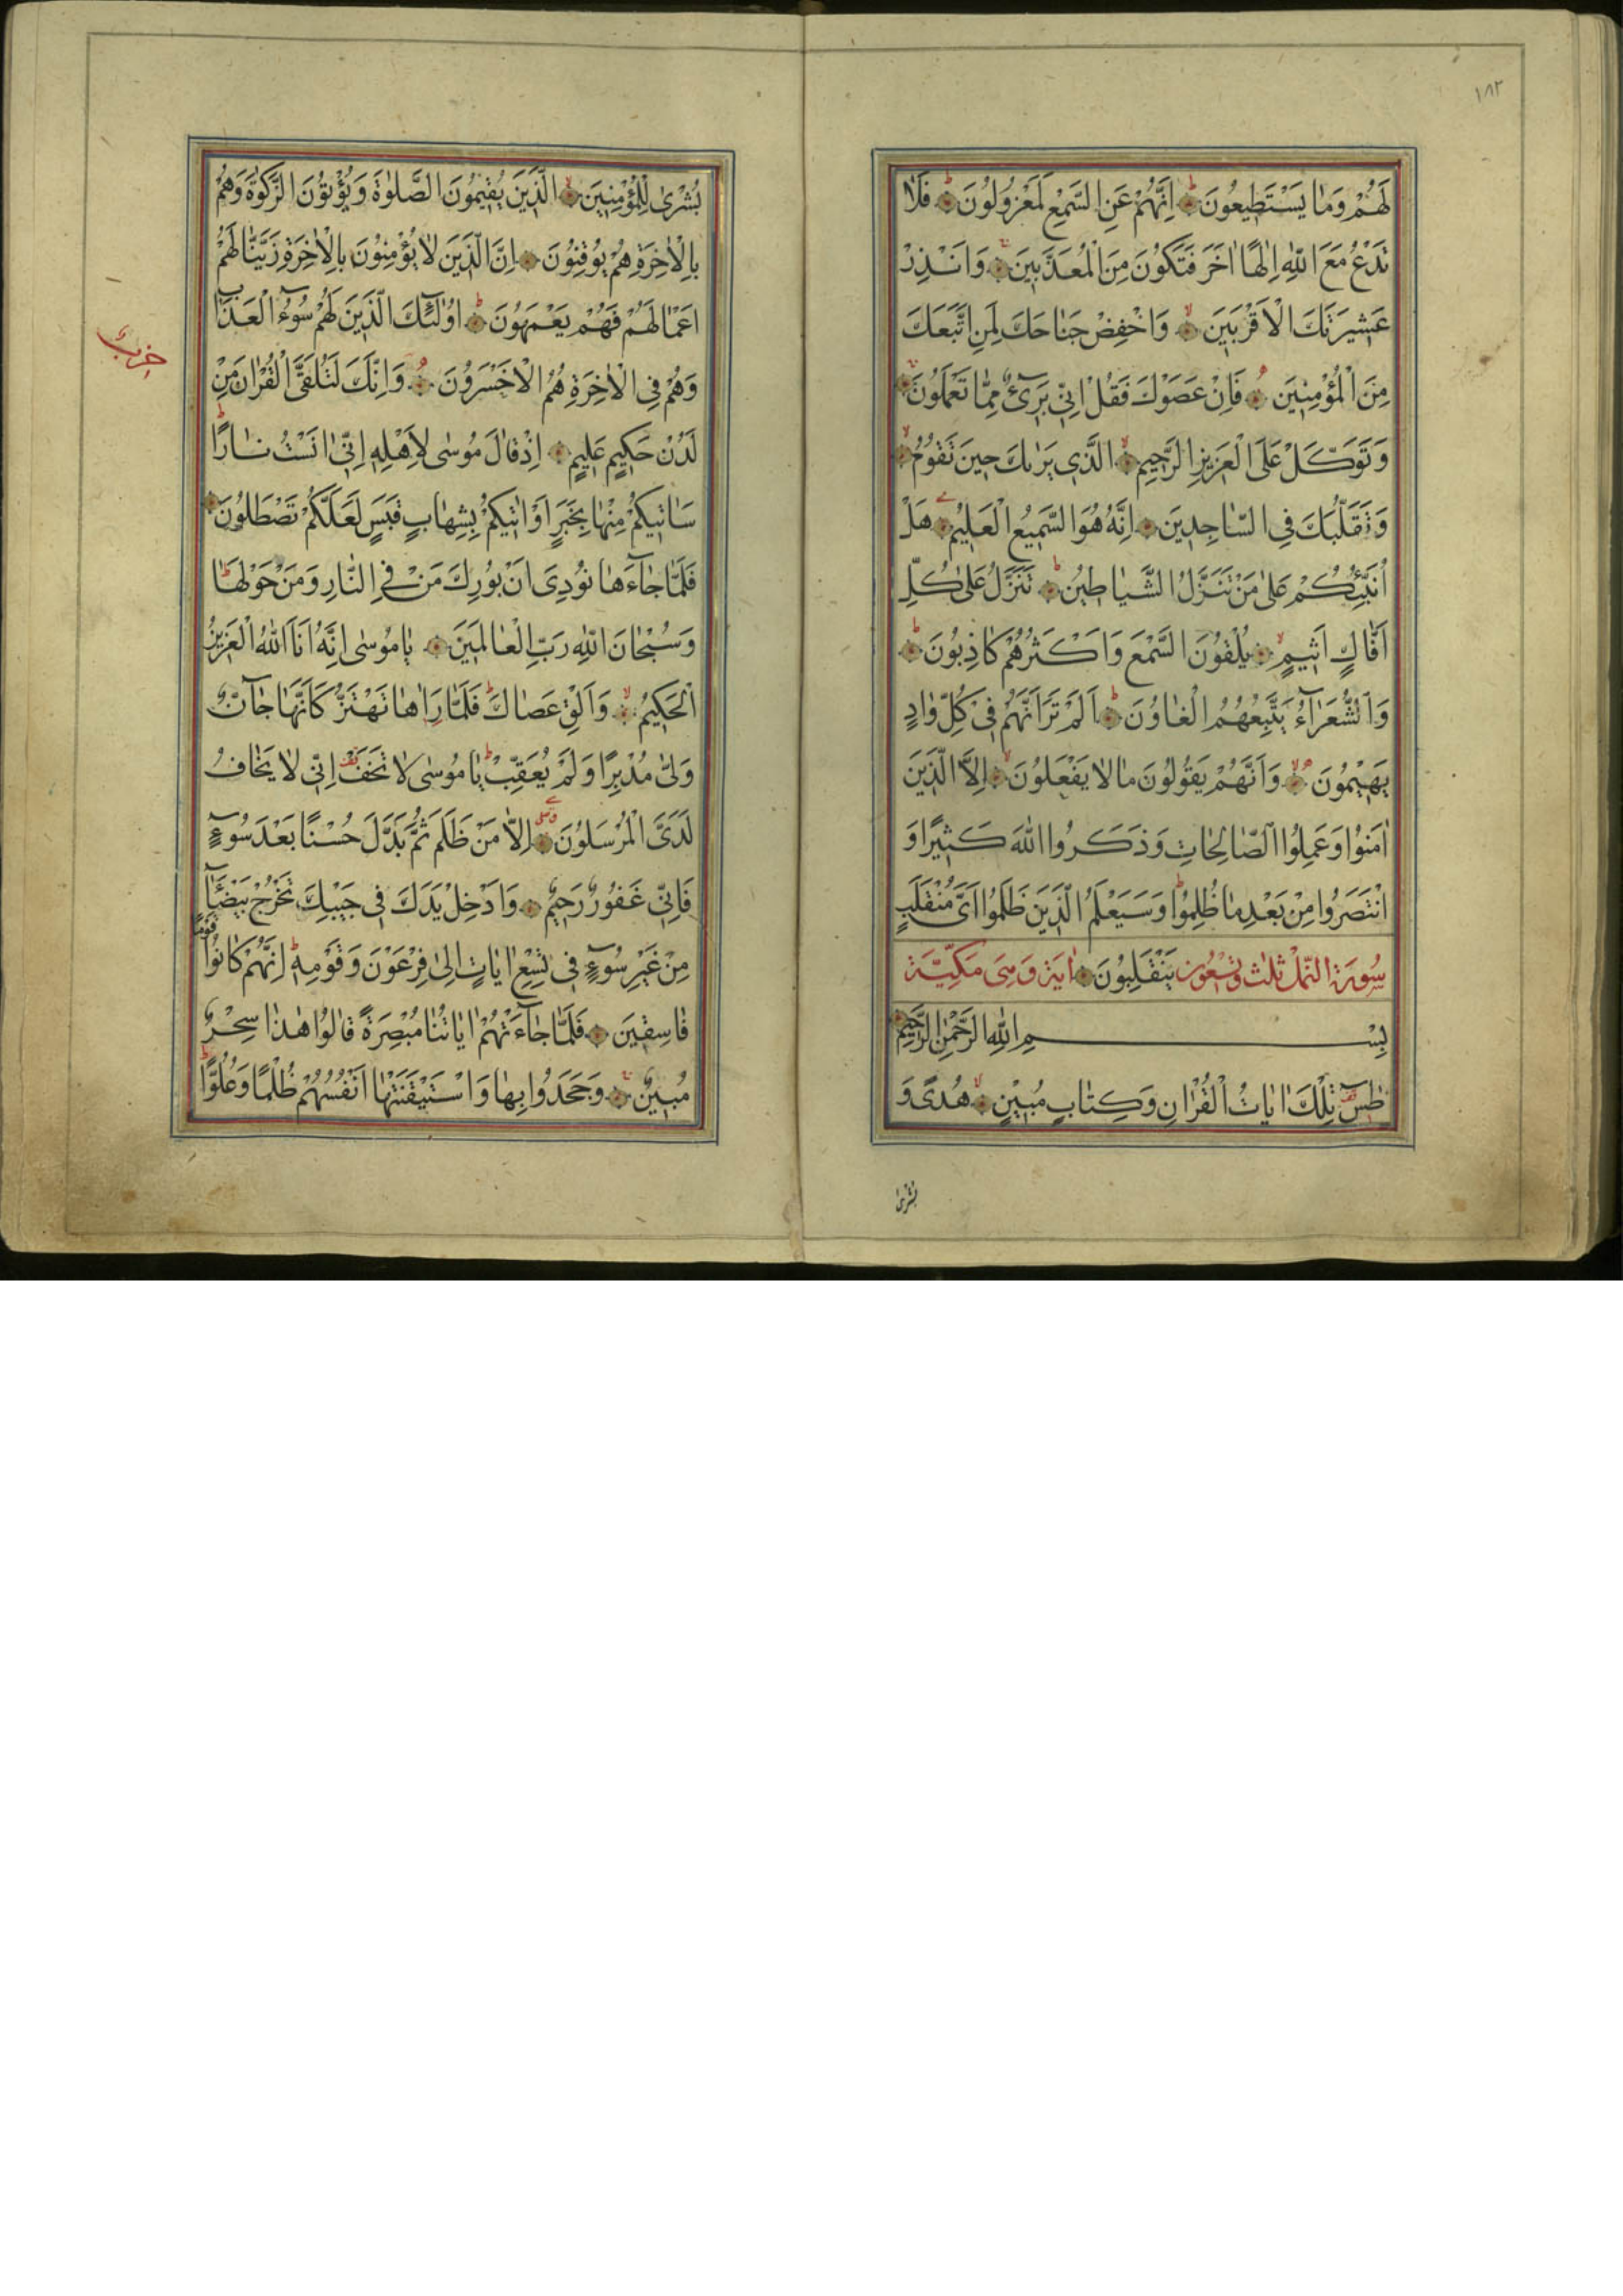 ١٨٢
لَهُمْ وَمَا يَسْتَطِيعُونَ اِنَّهُمْ عَنِ السَّمْعِ لَمَعْزُولُونَ فَلَا
تَدْعُ مَعَ اللّٰهِ اِلٰهًا اٰخَرَ فَتَكُونَ مِنَ الْمُعَذَّبِينَ وَاَنْذِرْ
عَشِيرَتَكَ الْاَقْرَبِينَ وَاخْفِضْ جَنَاحَكَ لِمَنِ اتَّبَعَكَ
مِنَ الْمُؤْمِنِينَ فَاِنْ عَصَوْكَ فَقُلْ اِنِّي بَرِيٓءٌ مِمَّا تَعْمَلُونَ
وَتَوَكَّلْ عَلَى الْعَزِيزِ الرَّحِيمِ الَّذِي يَرٰيكَ حِينَ تَقُومُ
وَتَقَلُّبَكَ فِي السَّاجِدِينَ اِنَّهُ هُوَ السَّمِيعُ الْعَلِيمُ هَلْ
اُنَبِّئُكُمْ عَلٰى مَنْ تَنَزَّلُ الشَّيَاطِينُ تَنَزَّلُ عَلٰى كُلِّ
اَفَّاكٍ اَثِيمٍ يُلْقُونَ السَّمْعَ وَاَكْثَرُهُمْ كَاذِبُونَ
وَالشُّعَرَآءُ يَتَّبِعُهُمُ الْغَاوُنَ اَلَمْ تَرَ اَنَّهُمْ فِي كُلِّ وَادٍ
يَهِيمُونَ وَاَنَّهُمْ يَقُولُونَ مَا لَا يَفْعَلُونَ اِلَّا الَّذِينَ
اٰمَنُوا وَعَمِلُوا الصَّالِحَاتِ وَذَكَرُوا اللّٰهَ كَثِيرًا وَ
انْتَصَرُوا مِنْ بَعْدِ مَا ظُلِمُوا وَسَيَعْلَمُ الَّذِينَ ظَلَمُوا اَيَّ مُنْقَلَبٍ
سُورَة النمل ثلث وتسعون يَنْقَلِبُونَ اية وهى مَكِيّة
بِسْمِ اللّٰهِ الرَّحْمٰنِ الرَّحِيمِ
طٰسٓ تِلْكَ اٰيَاتُ الْقُرْاٰنِ وَكِتَابٍ مُبِينٍ هُدًى وَ
بشرى
بُشْرٰى لِلْمُؤْمِنِينَ الَّذِينَ يُقِيمُونَ الصَّلٰوةَ وَيُؤْتُونَ الزَّكٰوةَ وَهُمْ
بِالْاٰخِرَةِ هُمْ يُوقِنُونَ اِنَّ الَّذِينَ لَا يُؤْمِنُونَ بِالْاٰخِرَةِ زَيَّنَّا لَهُمْ
اَعْمَالَهُمْ فَهُمْ يَعْمَهُونَ اُولٰٓئِكَ الَّذِينَ لَهُمْ سُوٓءُ الْعَذَابِ
حزب
وَهُمْ فِي الْاٰخِرَةِ هُمُ الْاَخْسَرُونَ وَاِنَّكَ لَتُلَقَّى الْقُرْاٰنَ مِنْ
لَدُنْ حَكِيمٍ عَلِيمٍ اِذْ قَالَ مُوسٰى لِاَهْلِهِ اِنِّي اٰنَسْتُ نَارًا
سَاٰتِيكُمْ مِنْهَا بِخَبَرٍ اَوْ اٰتِيكُمْ بِشِهَابٍ قَبَسٍ لَعَلَّكُمْ تَصْطَلُونَ
فَلَمَّا جَآءَهَا نُودِيَ اَنْ بُورِكَ مَنْ فِي النَّارِ وَمَنْ حَوْلَهَا
وَسُبْحَانَ اللّٰهِ رَبِّ الْعَالَمِينَ يَا مُوسٰى اِنَّهُ اَنَا اللّٰهُ الْعَزِيزُ
الْحَكِيمُ وَاَلْقِ عَصَاكَ فَلَمَّا رَاٰهَا تَهْتَزُّ كَاَنَّهَا جَآنٌّ
وَلّٰى مُدْبِرًا وَلَمْ يُعَقِّبْ يَا مُوسٰى لَا تَخَفْ اِنِّي لَا يَخَافُ
لَدَيَّ الْمُرْسَلُونَ اِلَّا مَنْ ظَلَمَ ثُمَّ بَدَّلَ حُسْنًا بَعْدَ سُوٓءٍ
فَاِنِّي غَفُورٌ رَحِيمٌ وَاَدْخِلْ يَدَكَ فِي جَيْبِكَ تَخْرُجْ بَيْضَآءَ
مِنْ غَيْرِ سُوٓءٍ فِي تِسْعِ اٰيَاتٍ اِلٰى فِرْعَوْنَ وَقَوْمِهِ اِنَّهُمْ كَانُوا قَوْمًا
فَاسِقِينَ فَلَمَّا جَآءَتْهُمْ اٰيَاتُنَا مُبْصِرَةً قَالُوا هٰذَا سِحْرٌ
مُبِينٌ وَجَحَدُوا بِهَا وَاسْتَيْقَنَتْهَا اَنْفُسُهُمْ ظُلْمًا وَعُلُوًّا